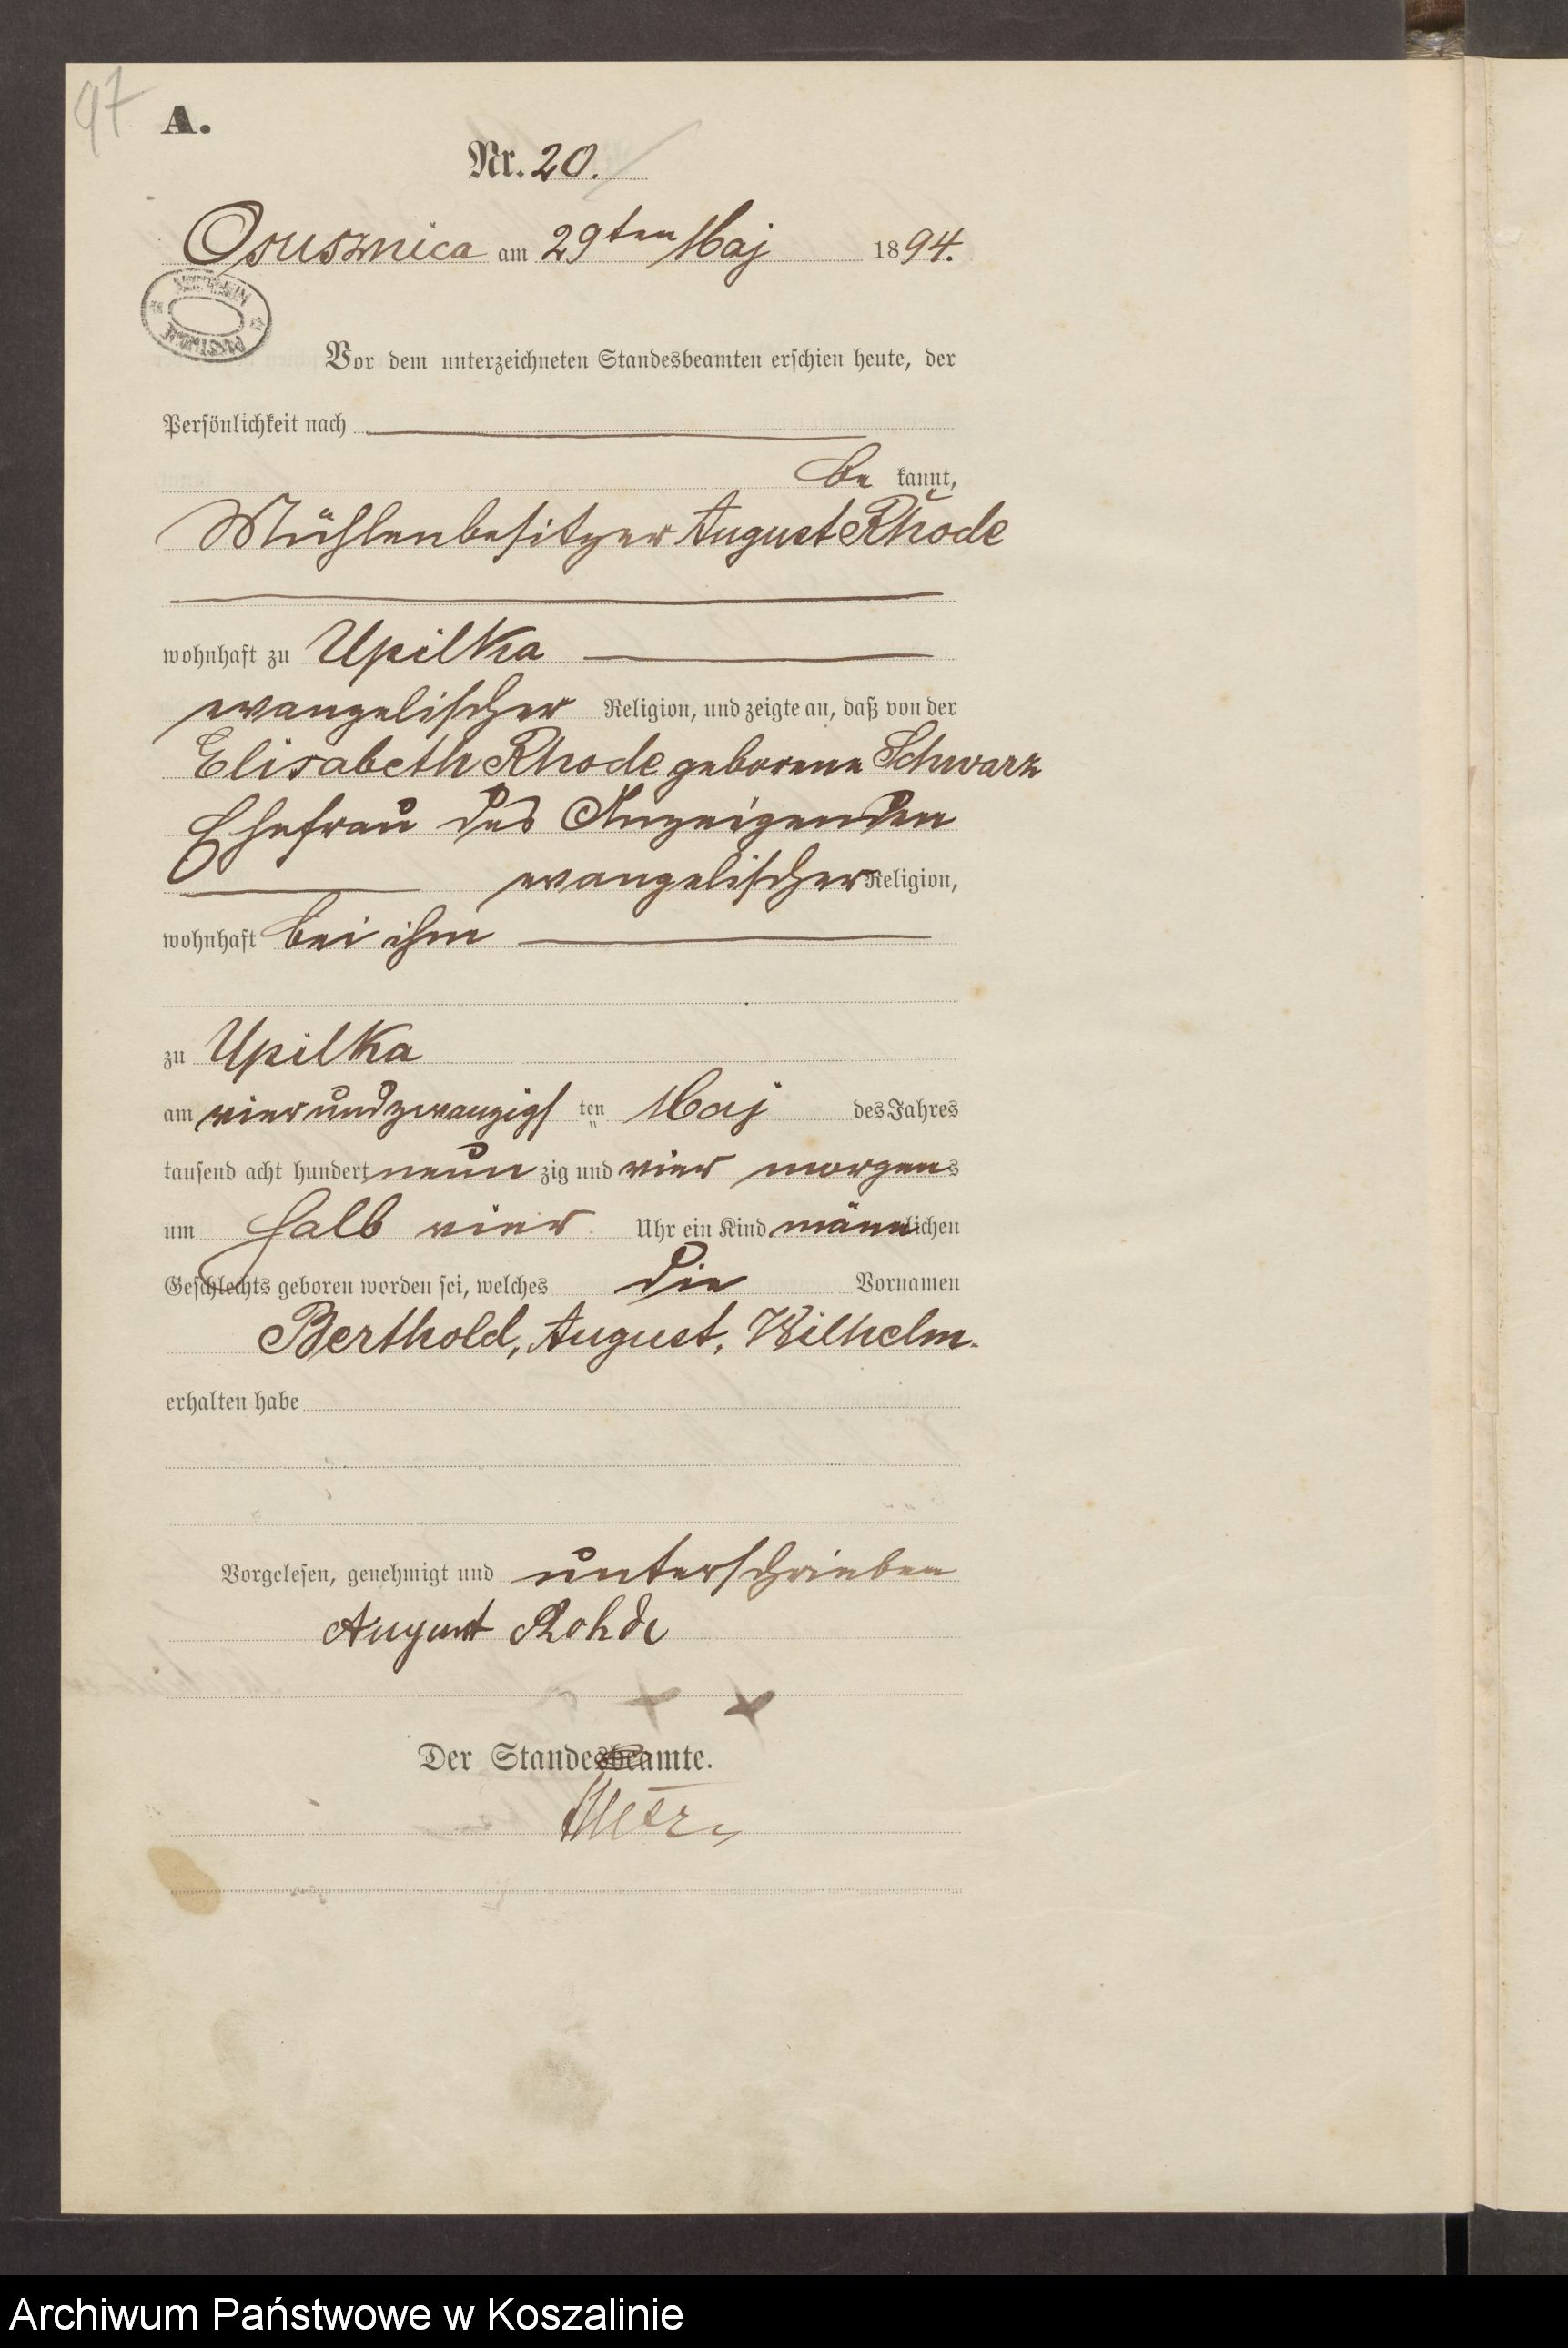 97
A.
Nr. 20.
Osusznica am 29ten Maj 1894.
Vor dem unterzeichneten Standesbeamten erschien heute, der
Persönlichkeit nach
be kannt,
Mühlenbesitzer August Rhode
wohnhaft zu Upilka
evangelischer Religion, und zeigte an, daß von der
Elisabeth Rhode geborene Schwarz
Ehefrau des Anzeigenden
evangelischer Religion,
wohnhaft bei ihm
zu Upilka
am vierundzwanzigsten Maj des Jahres
tausend acht hundert neunzig und vier morgens
um halb vier Uhr ein Kind männlichen
Geschlechts geboren worden sei, welches die Vornamen
Berthold, August, Wilhelm.
erhalten habe
Vorgelesen, genehmigt und unterschrieben
August Rohde
Der Standesbeamte.
Archiwum Państwowe w Koszalinie